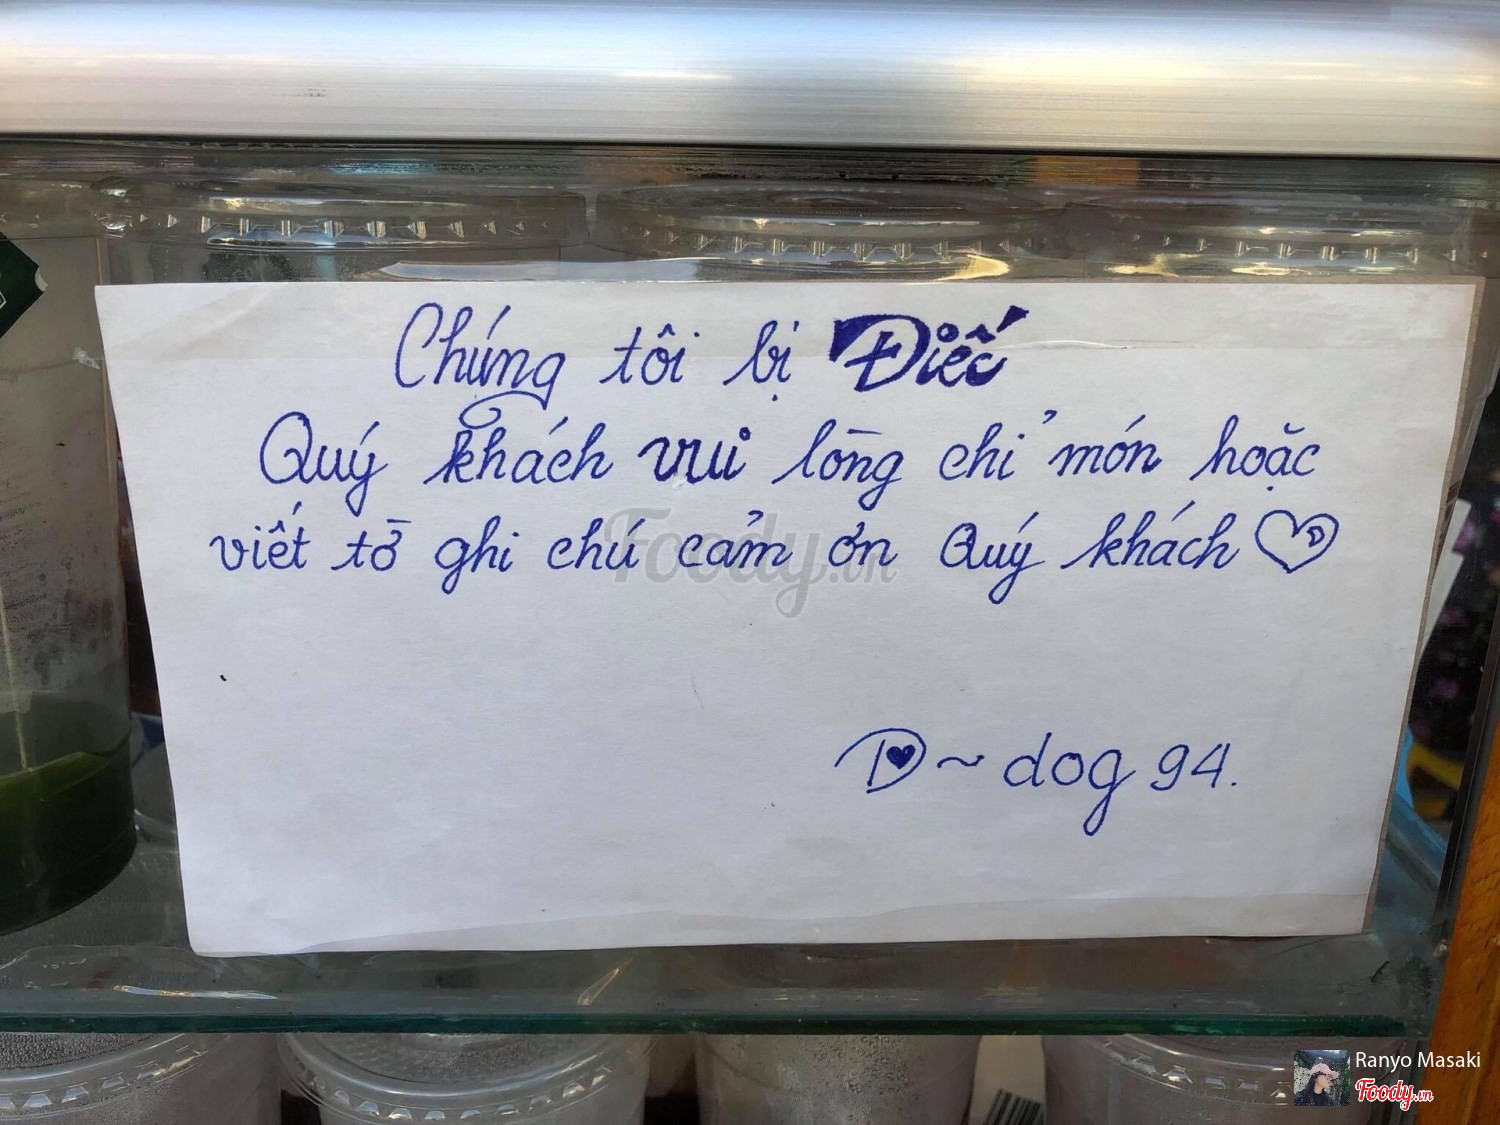 Chúng tôi bị Điếc
Quý khách vui lòng chỉ món hoặc
viết tờ ghi chú cảm ơn Quý khách
D ~ dog 94.
Foody.vn
Ranyo Masaki
Foody.vn